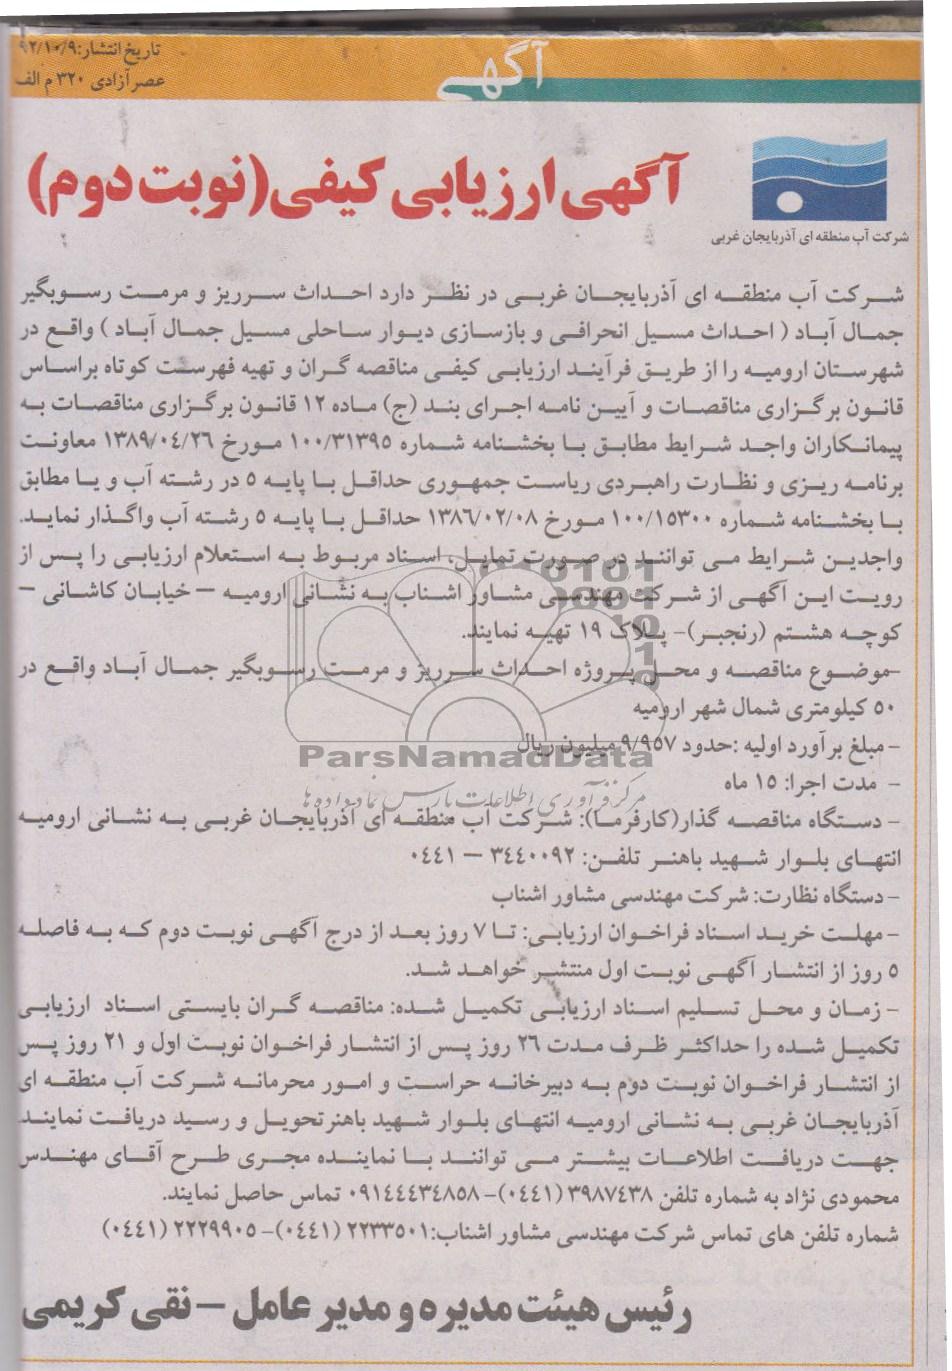 تاریخ انتشار:۹۲/۱۰/۹
عصر آزادی ۳۲۰ م الف
آگهی
آگهی ارزیابی کیفی(نوبت دوم)
شرکت آب منطقه ای آذربایجان غربی
شرکت آب منطقه ای آذربایجان غربی در نظر دارد احداث سرریز و مرمت رسوبگیر
جمال آباد ( احداث مسیل انحرافی و بازسازی دیوار ساحلی مسیل جمال آباد ) واقع در
شهرستان ارومیه را از طریق فرآیند ارزیابی کیفی مناقصه گران و تهیه فهرست کوتاه براساس
قانون برگزاری مناقصات و آیین نامه اجرای بند (ج) ماده ۱۲ قانون برگزاری مناقصات به
پیمانکاران واجد شرایط مطابق با بخشنامه شماره ۱۰۰/۳۱۳۹۵ مورخ ۱۳۸۹/۰۴/۲۶ معاونت
برنامه ریزی و نظارت راهبردی ریاست جمهوری حداقل با پایه ۵ در رشته آب و یا مطابق
با بخشنامه شماره ۱۰۰/۱۵۳۰۰ مورخ ۱۳۸۶/۰۲/۰۸ حداقل با پایه ۵ رشته آب واگذار نماید.
واجدین شرایط می توانند در صورت تمایل، اسناد مربوط به استعلام ارزیابی را پس از
رویت این آگهی از شرکت مهندسی مشاور اشناب به نشانی ارومیه – خیابان کاشانی –
کوچه هشتم (رنجبر)- پلاک ۱۹ تهیه نمایند.
-موضوع مناقصه و محل پروژه احداث سرریز و مرمت رسوبگیر جمال آباد واقع در
۵۰ کیلومتری شمال شهر ارومیه
- مبلغ برآورد اولیه :حدود ۹/۹۵۷ میلیون ریال
ParsNamadData
- مدت اجرا: ۱۵ ماه
مرکز فرآوری اطلاعات پارس نماد داده ها
- دستگاه مناقصه گذار(کارفرما): شرکت آب منطقه ای آذربایجان غربی به نشانی ارومیه
انتهای بلوار شهید باهنر تلفن: ۳۴۴۰۰۹۲ – ۰۴۴۱
- دستگاه نظارت: شرکت مهندسی مشاور اشناب
- مهلت خرید اسناد فراخوان ارزیابی: تا ۷ روز بعد از درج آگهی نوبت دوم که به فاصله
۵ روز از انتشار آگهی نوبت اول منتشر خواهد شد.
- زمان و محل تسلیم اسناد ارزیابی تکمیل شده: مناقصه گران بایستی اسناد ارزیابی
تکمیل شده را حداکثر ظرف مدت ۲۶ روز پس از انتشار فراخوان نوبت اول و ۲۱ روز پس
از انتشار فراخوان نوبت دوم به دبیرخانه حراست و امور محرمانه شرکت آب منطقه ای
آذربایجان غربی به نشانی ارومیه انتهای بلوار شهید باهنر تحویل و رسید دریافت نمایند.
جهت دریافت اطلاعات بیشتر می توانند با نماینده مجری طرح آقای مهندس
محمودی نژاد به شماره تلفن ۳۹۸۷۴۳۸ (۰۴۴۱)- ۰۹۱۴۴۴۳۴۸۵۸ تماس حاصل نمایند.
شماره تلفن های تماس شرکت مهندسی مشاور اشناب:۲۲۳۳۵۰۱ (۰۴۴۱)- ۲۲۲۹۹۰۵ (۰۴۴۱)
رئیس هیئت مدیره و مدیر عامل – نقی کریمی